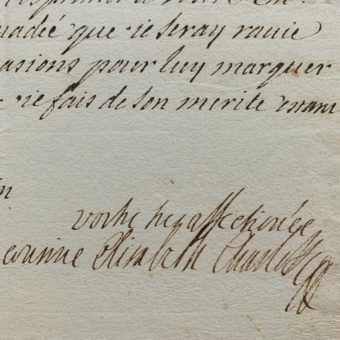 uadée que ie seray ravie
asions pour luy marquer
ie fais de son merite
vostre tres affectionée
cousine Elisabeth Charlotte